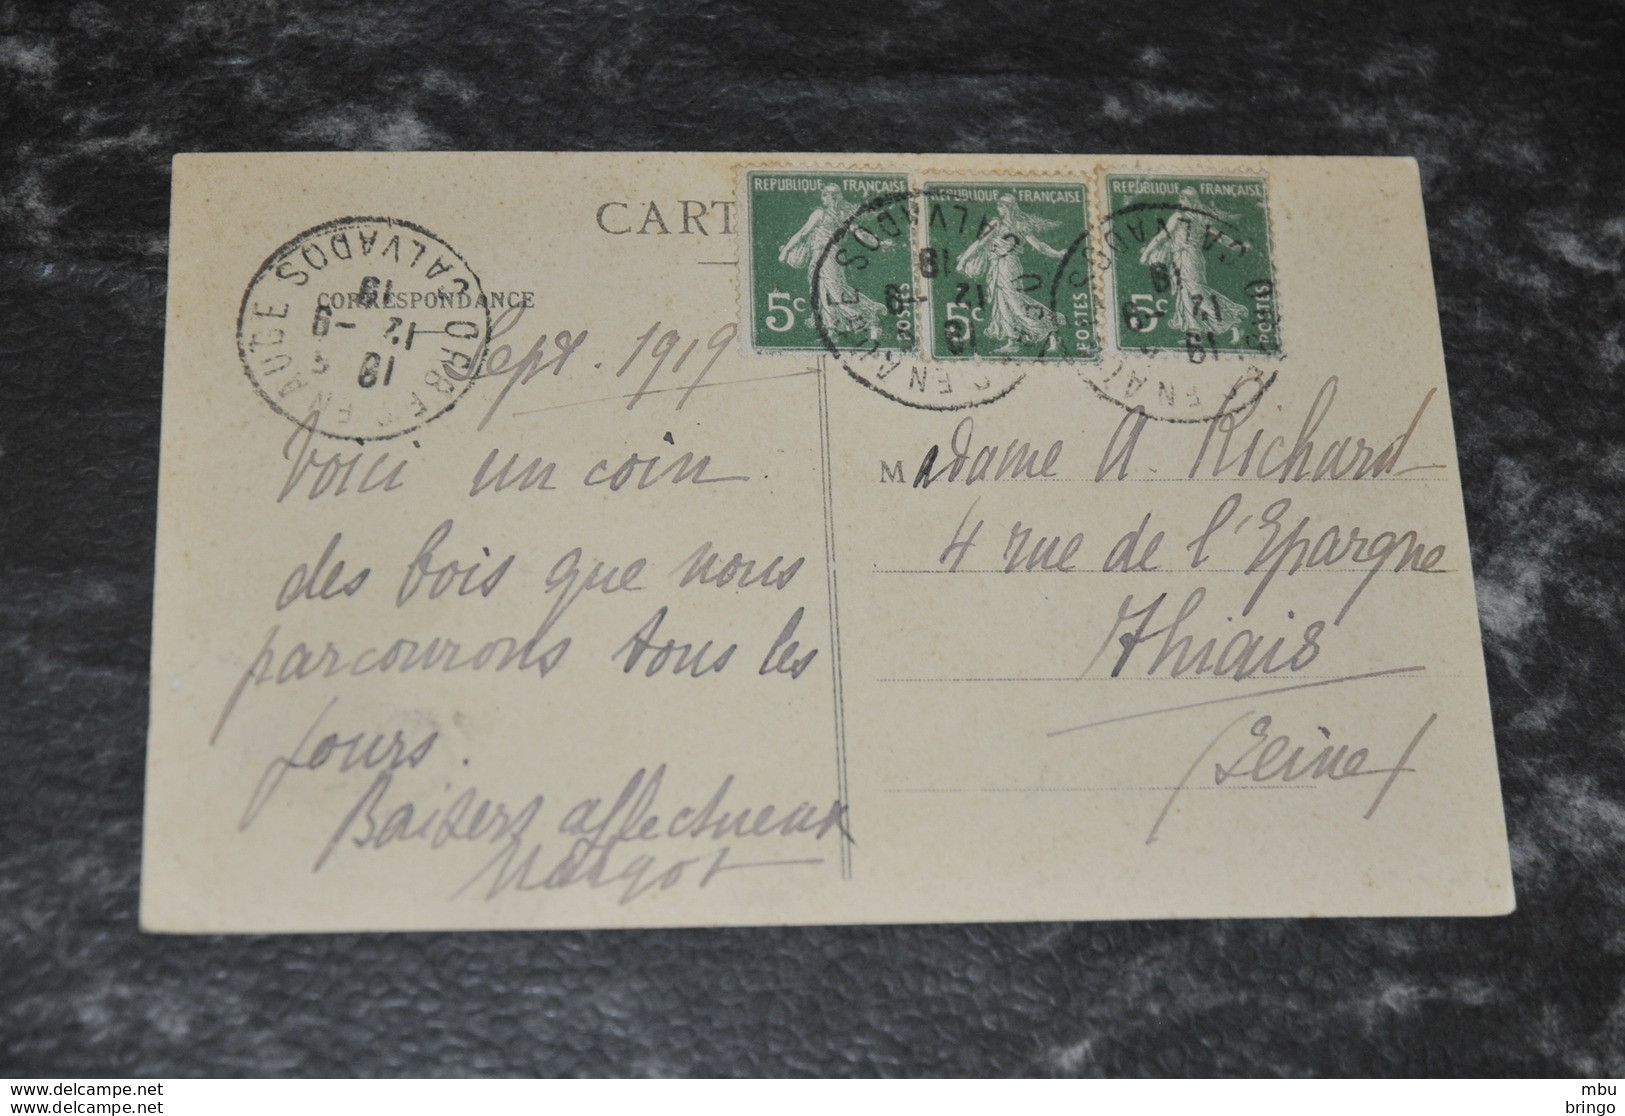 CART
REPUBLIQUE FRANÇAISE
5c
POSTES
REPUBLIQUE FRANÇAISE
5c
POSTES
REPUBLIQUE FRANÇAISE
5c
POSTES
ORBEC EN AUGE CALVADOS
19
12 -9
19
CORRESPONDANCE
Sept. 1919
Voici un coin
des bois que nous
parcourons tous les
jours.
Baisers affectueux
Margot
Madame A. Richard
4 rue de l'Epargne
Thiais
(Seine)
www.delcampe.net
www.delcampe.net
mbu
bringo